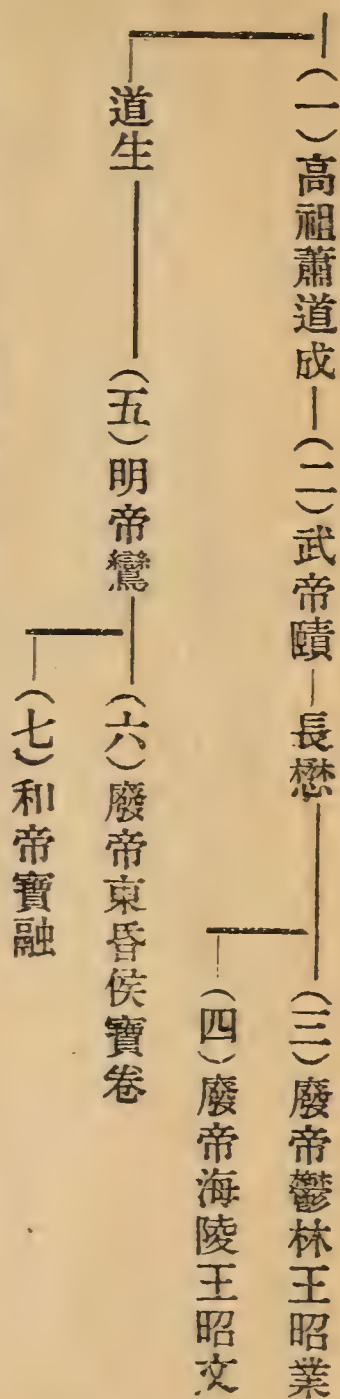 （一）高祖蕭道成（二）武帝賾 長懋 （三）廢帝鬱林王昭業
（四）廢帝海陵王昭文
道生 （五）明帝鸞 （六）廢帝東昏侯寶卷
（七）和帝寶融